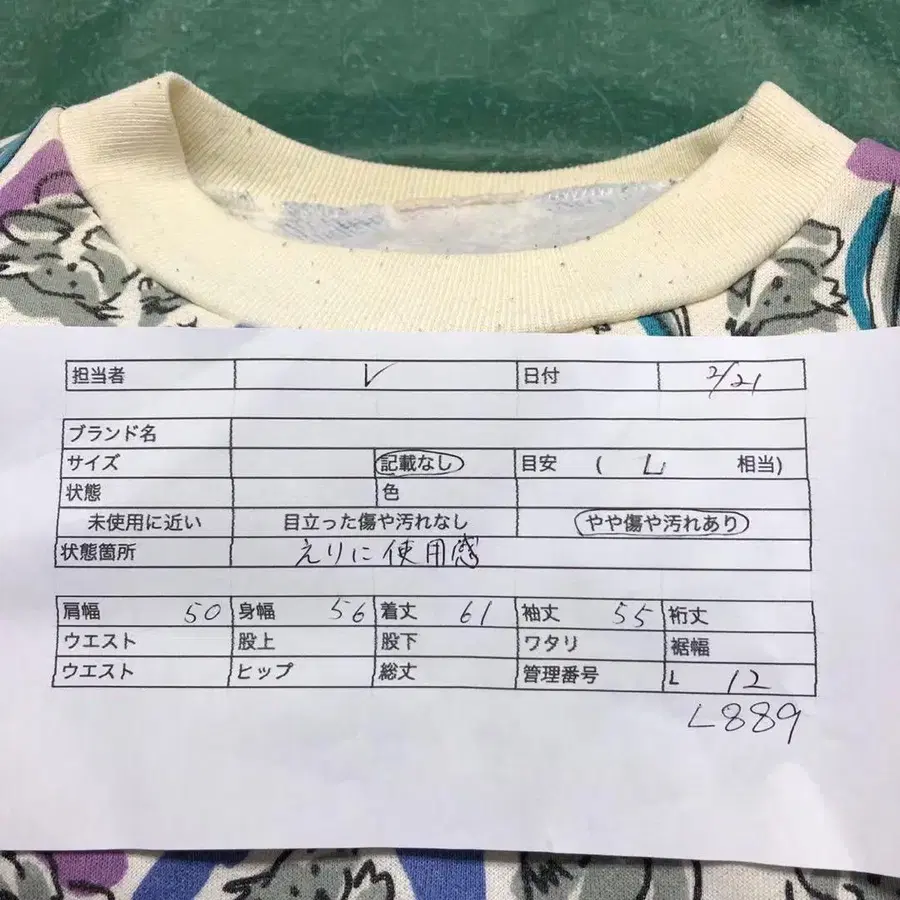 担当者 V 日付 2/21
ブランド名
サイズ 記載なし 目安 ( L 相当)
状態 色
未使用に近い 目立った傷や汚れなし やや傷や汚れあり
状態箇所 えりに使用感
肩幅 50 身幅 56 着丈 61 袖丈 55 裄丈
ウエスト 股上 股下 ワタリ 裾幅
ウエスト ヒップ 総丈 管理番号 L 12
L889